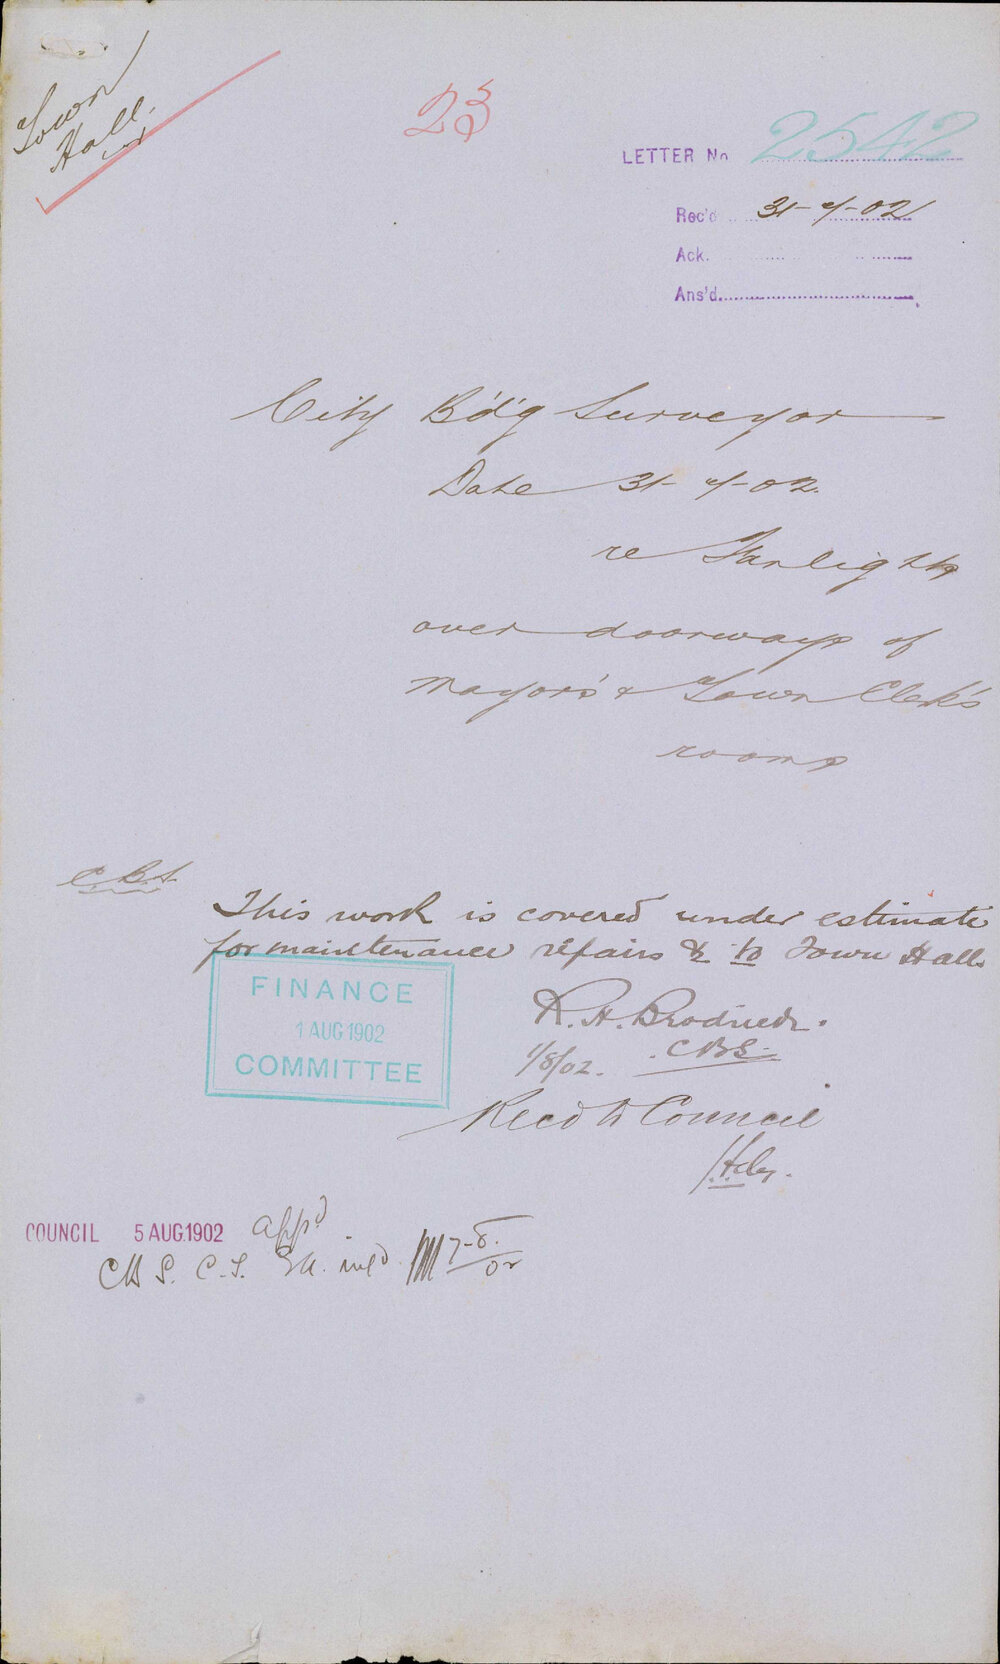 Town
Hall.
23
LETTER No 2542
Rec'd 31-7-02
Ack.
Ans'd.
City B'd'g Surveyor
Date 31-7-02.
re Fanlights
over doorways of
Mayor's & Town Clerk's
rooms
C.B.S.
This work is covered under estimate
for maintenance repairs & to Town Hall
FINANCE
1 AUG 1902
COMMITTEE
R. H. Brodrick.
1/8/02. C B S.
Rec'd to Council
COUNCIL 5 AUG. 1902 app'd
CBS. C.T. inf'd 7-8-02